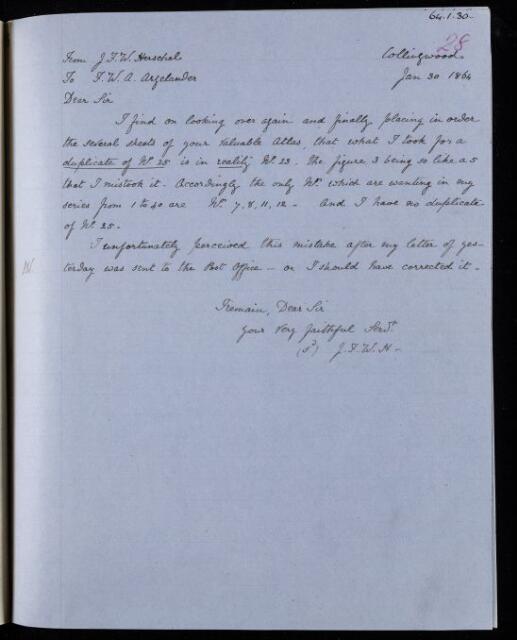 64.1.30.
28
From J.F.W. Herschel Collingwood.
To F.W.A. Argelander Jan 30 1864
Dear Sir
I find on looking over again and finally placing in order
the several sheets of your valuable Atlas, that what I took for a
duplicate of No. 25 is in reality No. 23. the figure 3 being so like a 5
that I mistook it. Accordingly the only Nos. which are wanting in my
series from 1 to 40 are Nos. 7, 8, 11, 12 - And I have no duplicate
of No. 25.
I unfortunately perceived this mistake after my letter of yes-
terday was sent to the Post Office - or I should have corrected it -
I remain, Dear Sir
your very faithful Servt.
(sd) J.F.W.H -